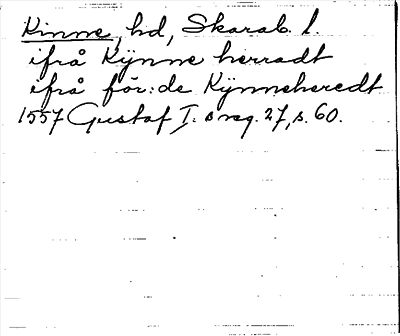 Kinne, hd, Skarab. l.
ifrå Kÿnne herradt
ifrå för:de Kÿnneheredt
1557 Gustaf I:s reg. 27, s. 60.